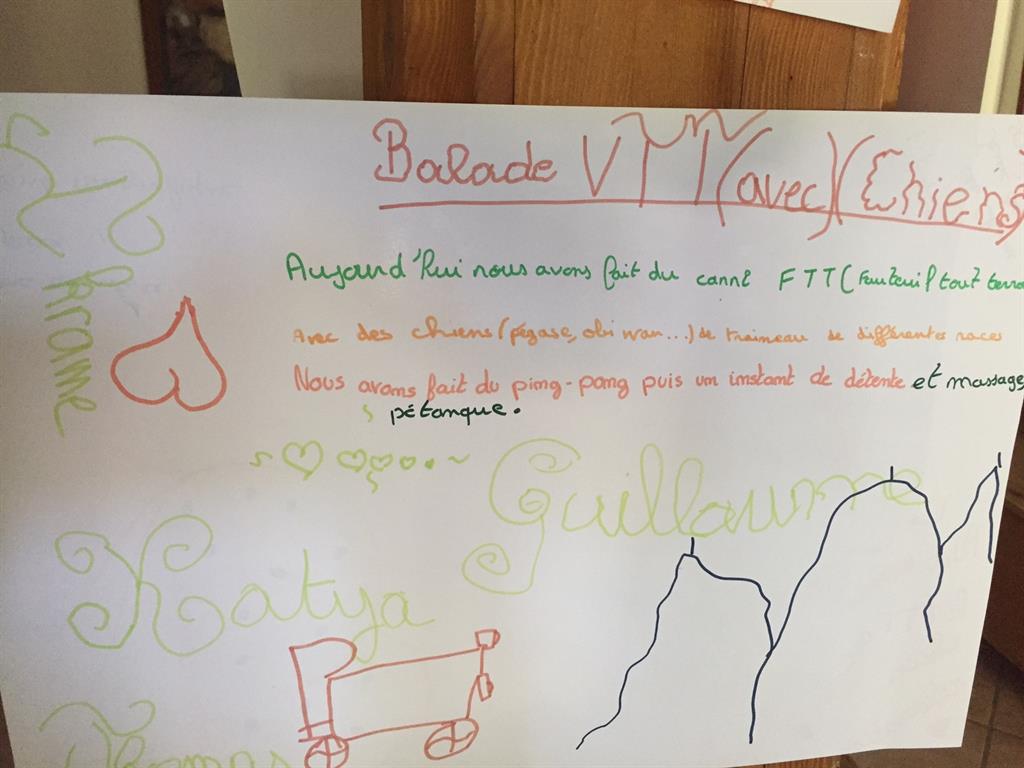 Balade VTT (avec) (Chiens)
Aujourd'hui nous avons fait du canni FTT (Fauteuil tout terra
Avec des chiens (pégase, obi wan...) de traineau de différentes races
Nous avons fait du ping-pong puis un instant de détente et massage,
pétanque.
Guillaume
Katya
Thomas